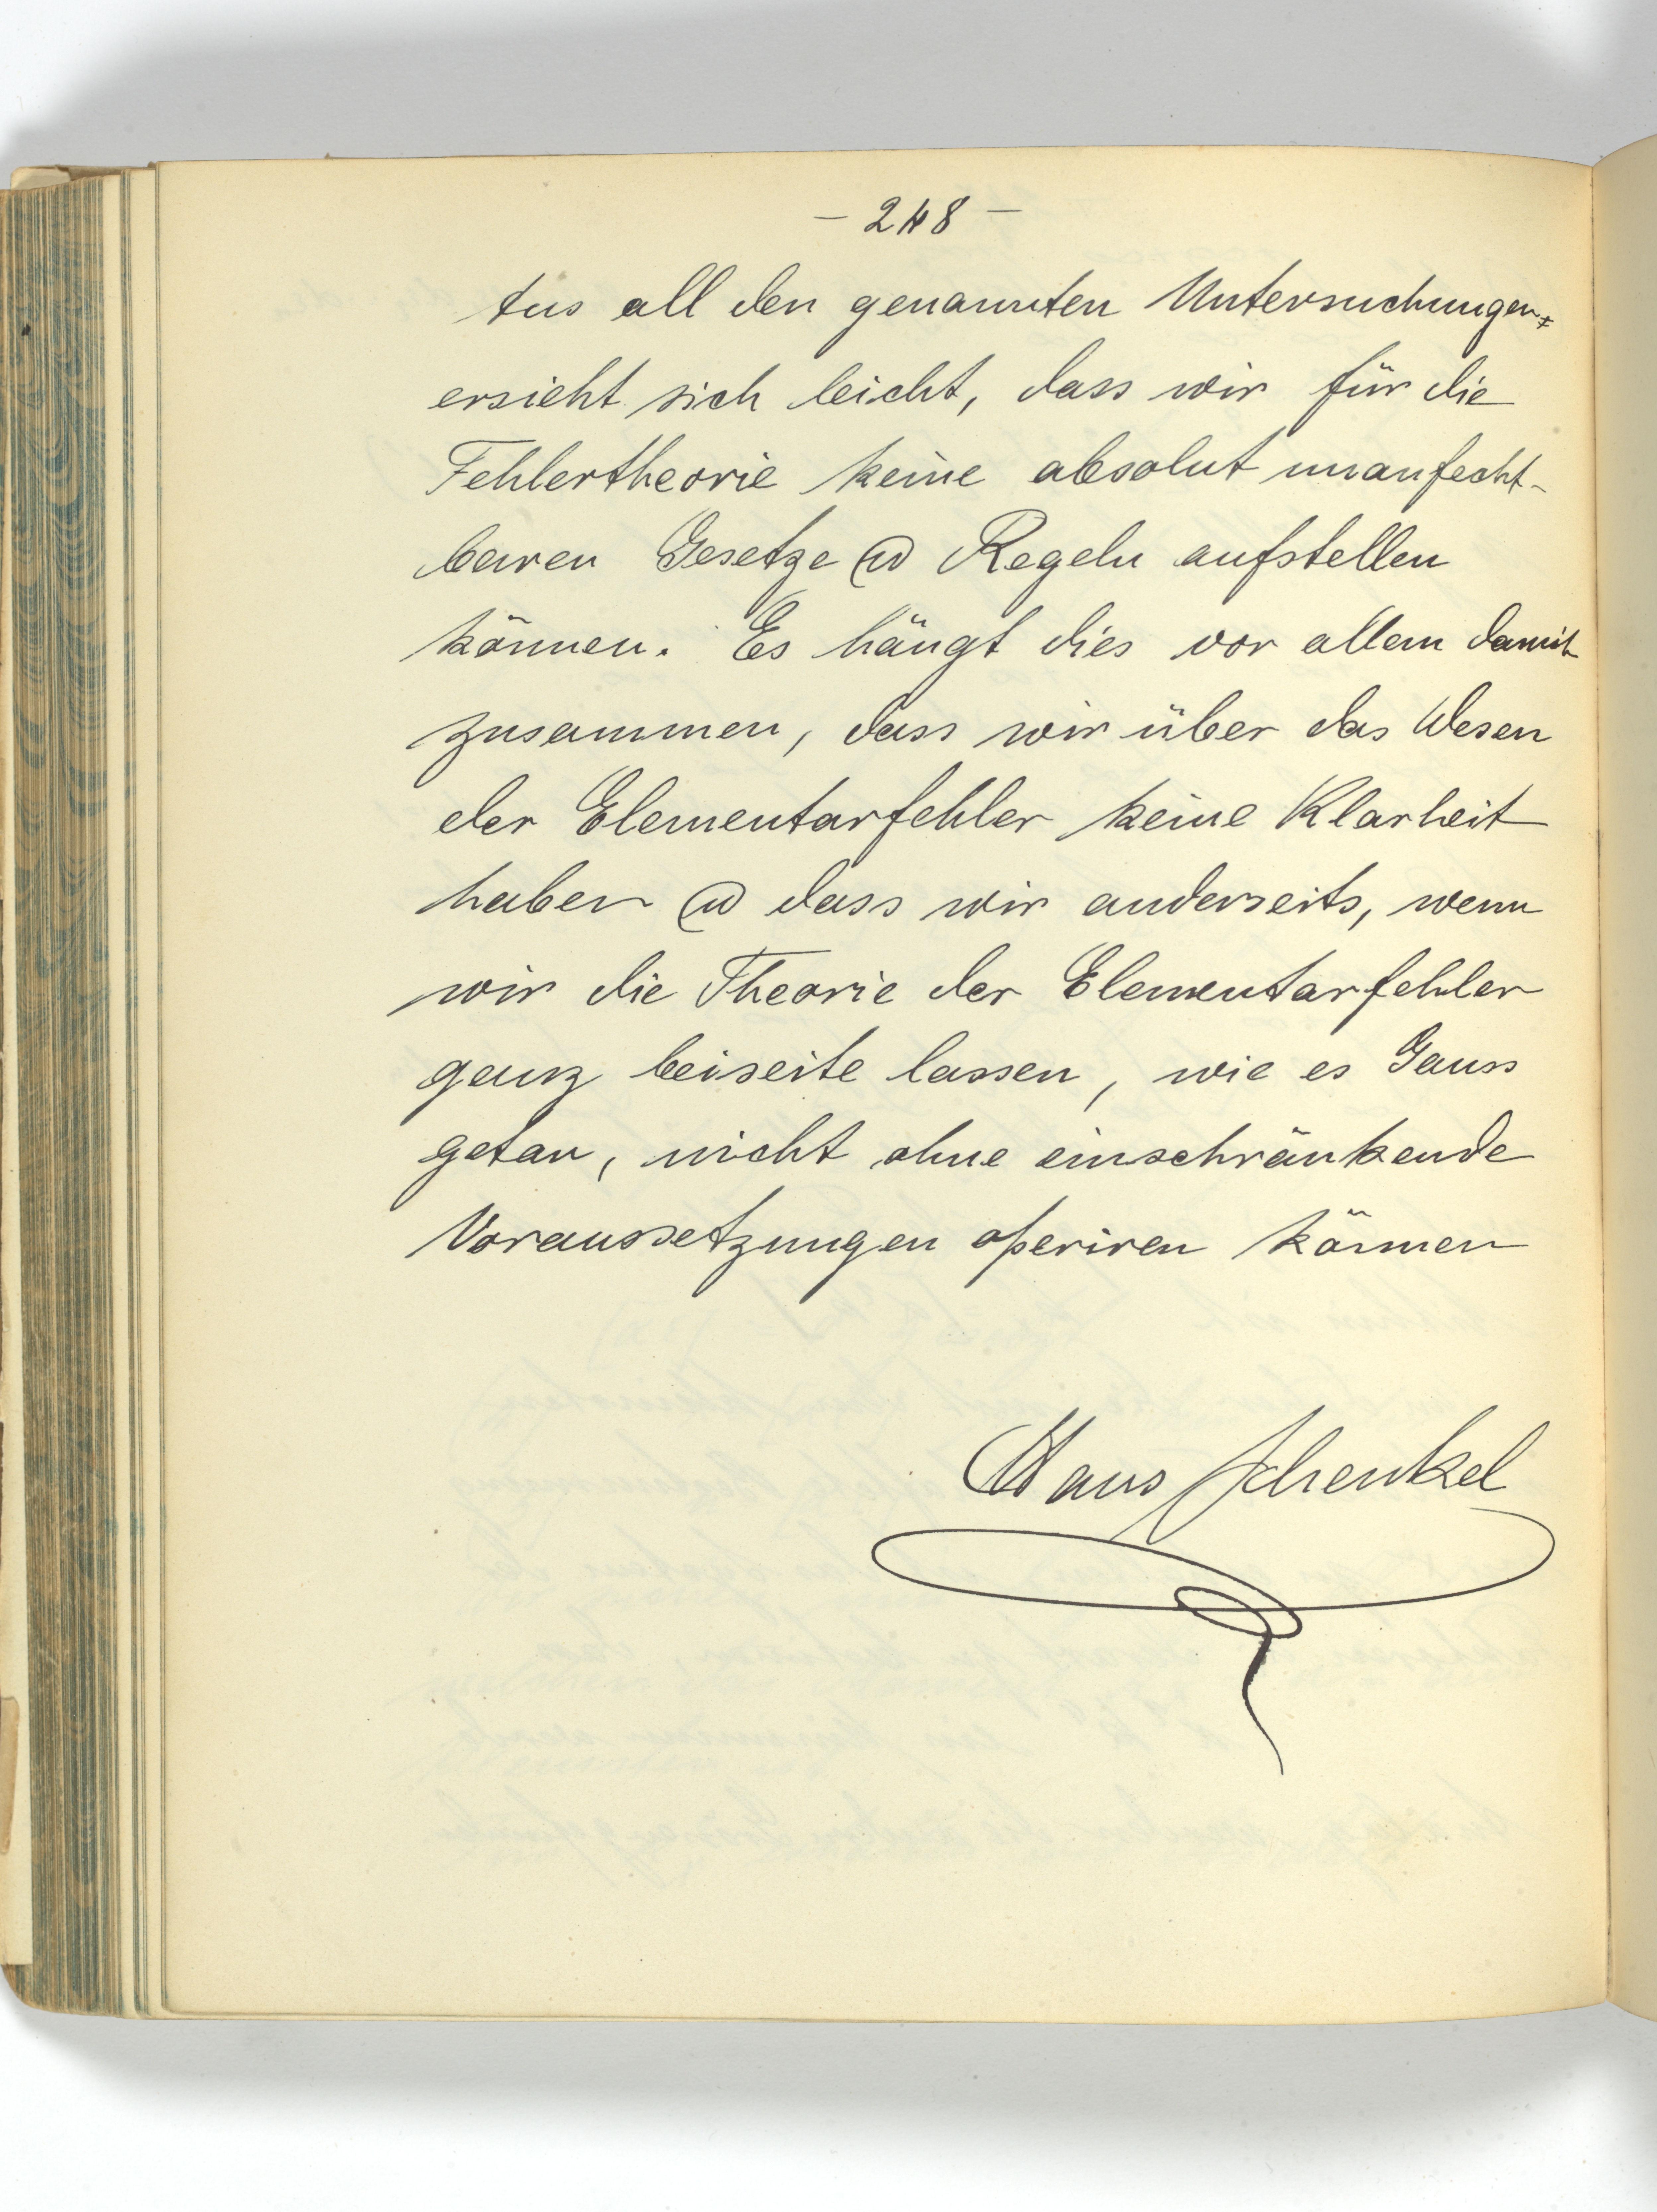 - 248 -
Aus all den genannten Untersuchungen
ersieht sich leicht, dass wir für die
Fehlertheorie keine absolut unanfecht-
baren Gesetze & Regeln aufstellen
können. Es hängt dies vor allem damit
zusammen, dass wir über das Wesen
der Elementarfehler keine Klarheit
haben & dass wir anderseits, wenn
wir die Theorie der Elementarfehler
ganz beiseite lassen, wie es Gauss
getan, nicht ohne einschränkende
Voraussetzungen operiren können
Hans Schenkel